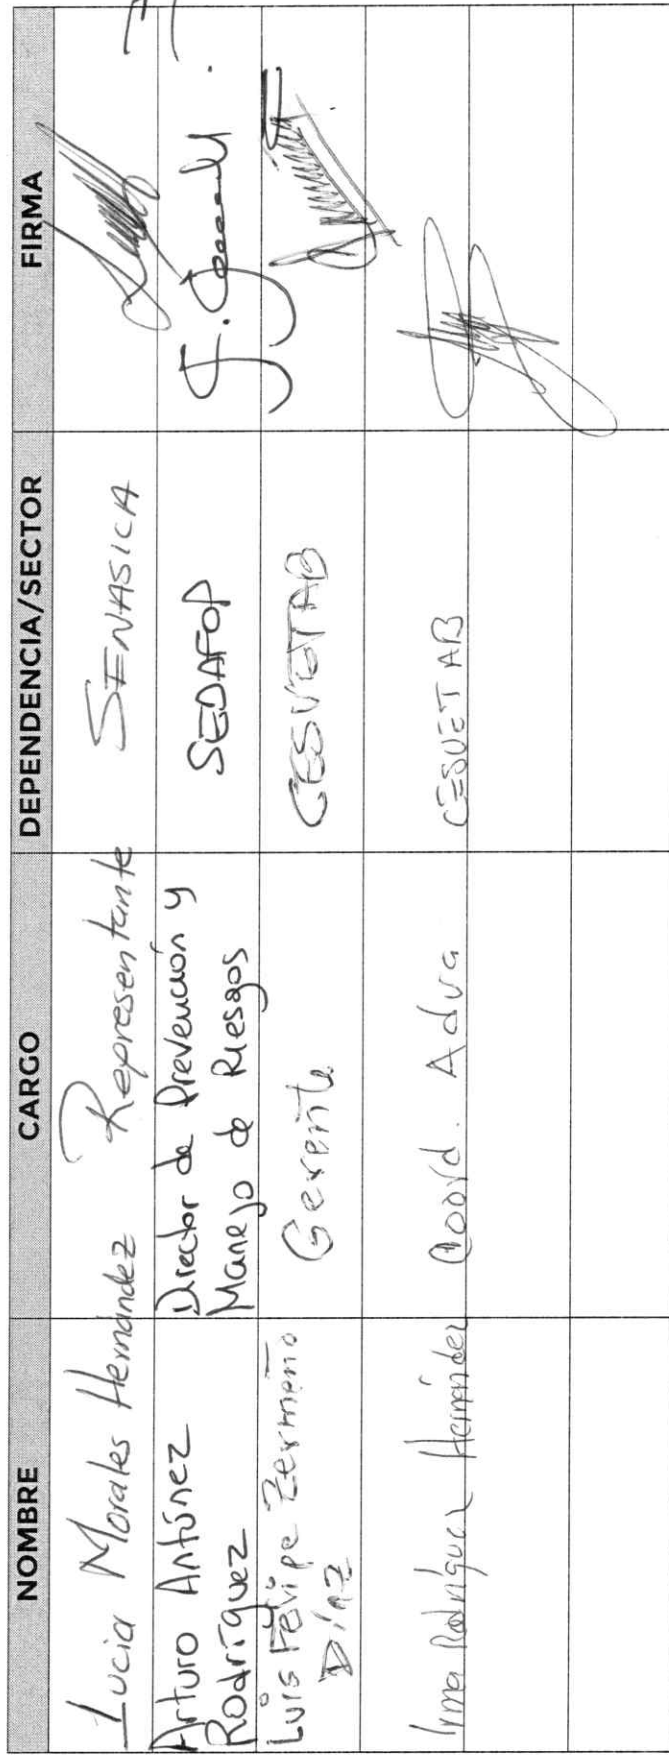 NOMBRE CARGO DEPENDENCIA/SECTOR FIRMA
Lucia Morales Hernández Representante SENASICA
Arturo Antúnez Director de Prevención y SEDAFOP
Rodríguez Manejo de Riesgos
Luis Felipe Zermeño Gerente CESVETAB
Díaz
Irma Rodríguez Hernández Coord. Adva CESVETAB